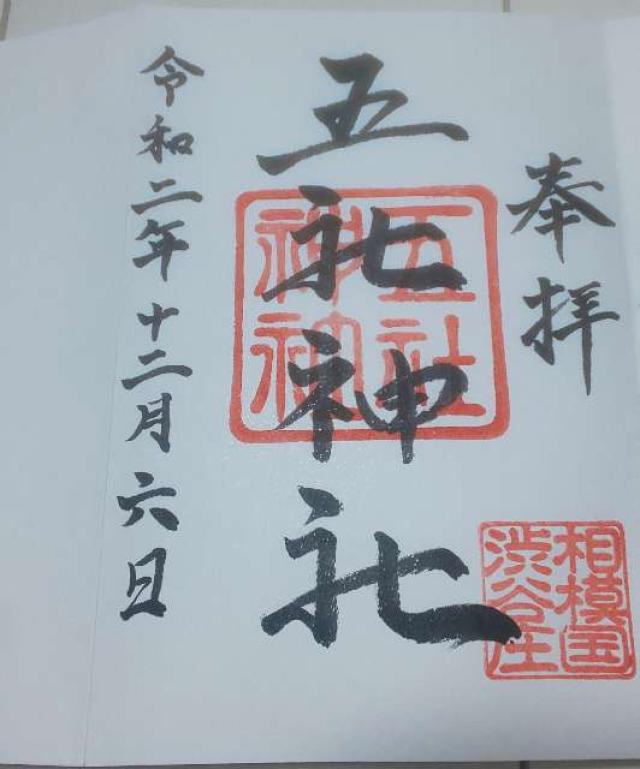 奉拝
相模国
渋谷庄
五社神社
五社
令和二年十二月六日